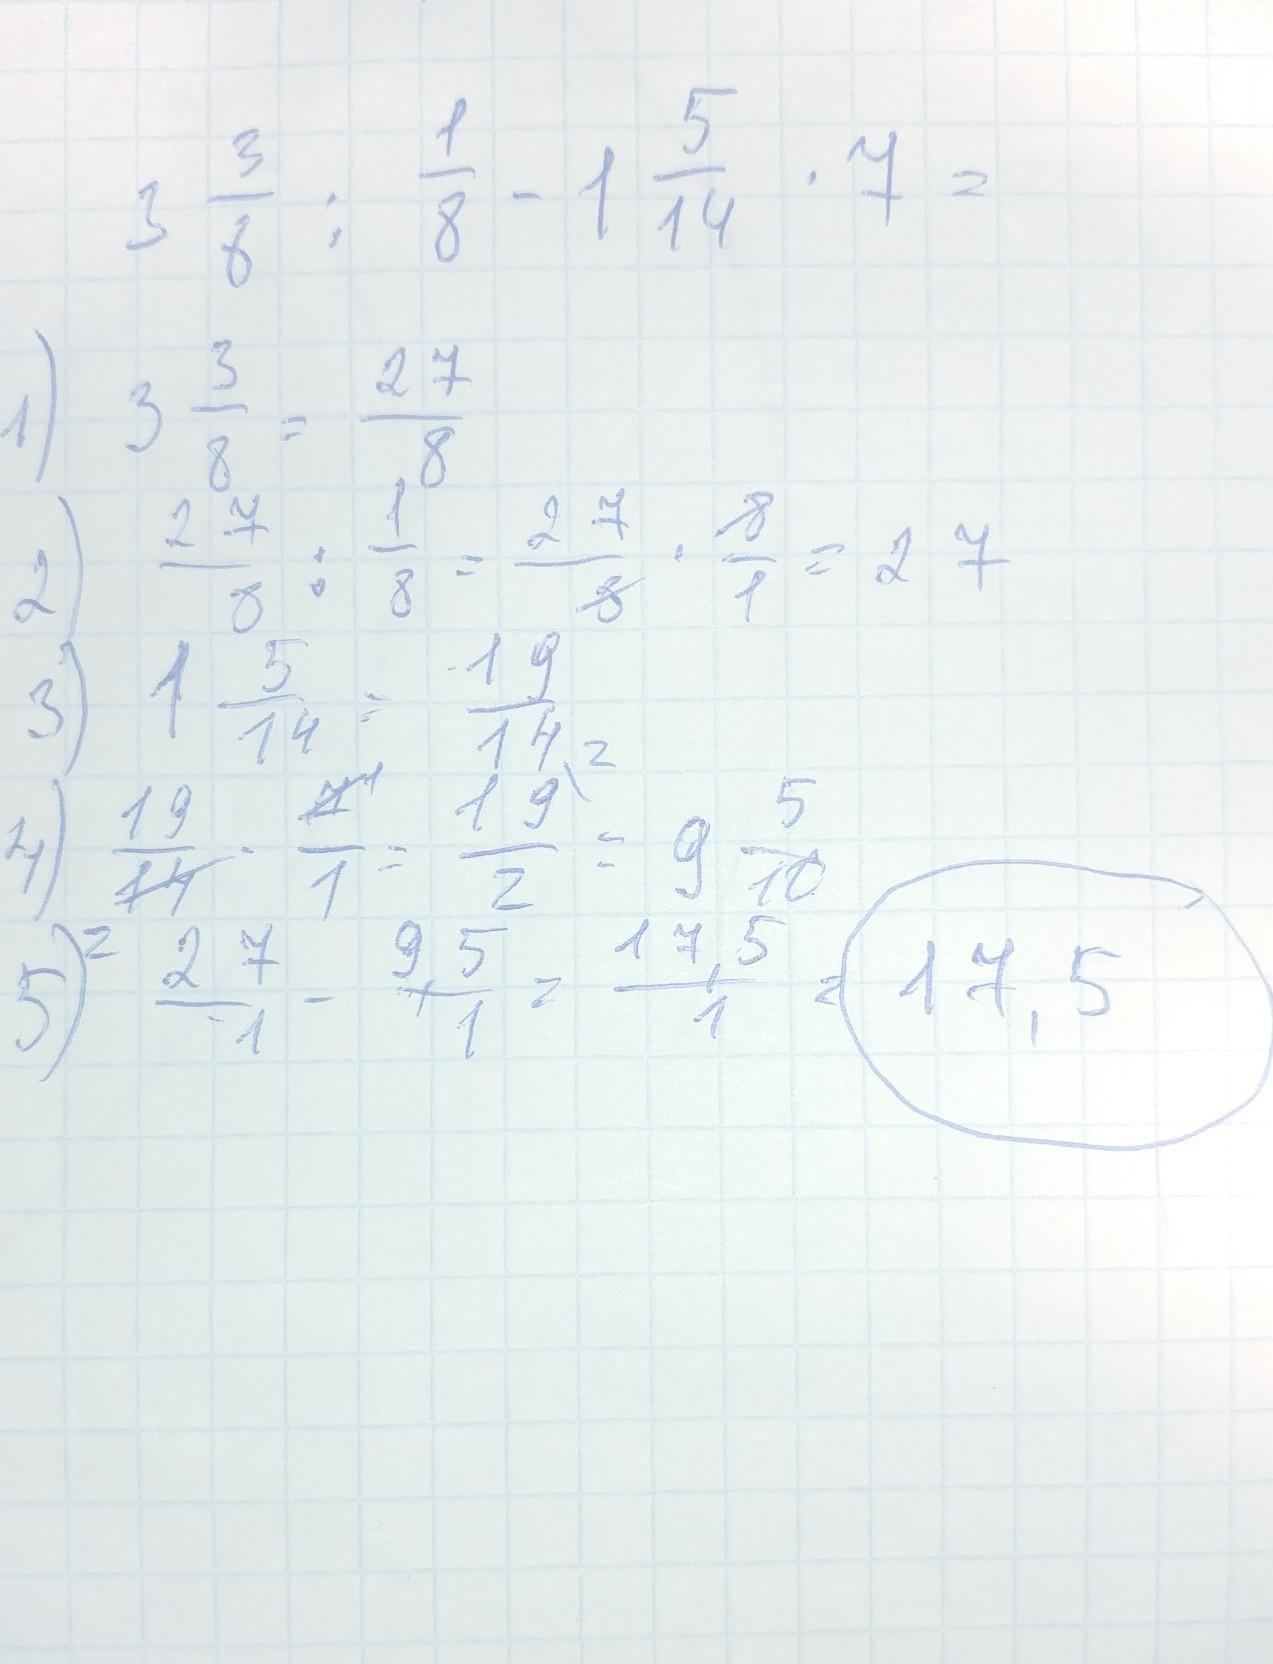 3 3/8 : 1/8 - 1 5/14 · 7 =
1) 3 3/8 = 27/8
2) 27/8 : 1/8 = 27/8 · 8/1 = 27
3) 1 5/14 = 19/14
4) 19/14 2 · 7 1/1 = 19/2 = 9 5/10
5) = 27/1 - 9,5/1 = 17,5/1 = 17,5